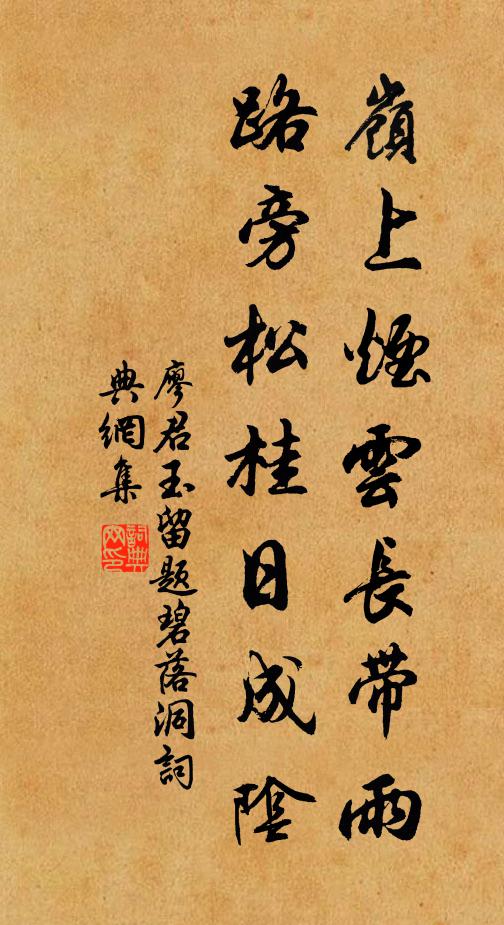 嶺上煙雲長帶雨
路旁松桂日成陰
廖君玉留題碧落洞詞
典網集
詞典
网印